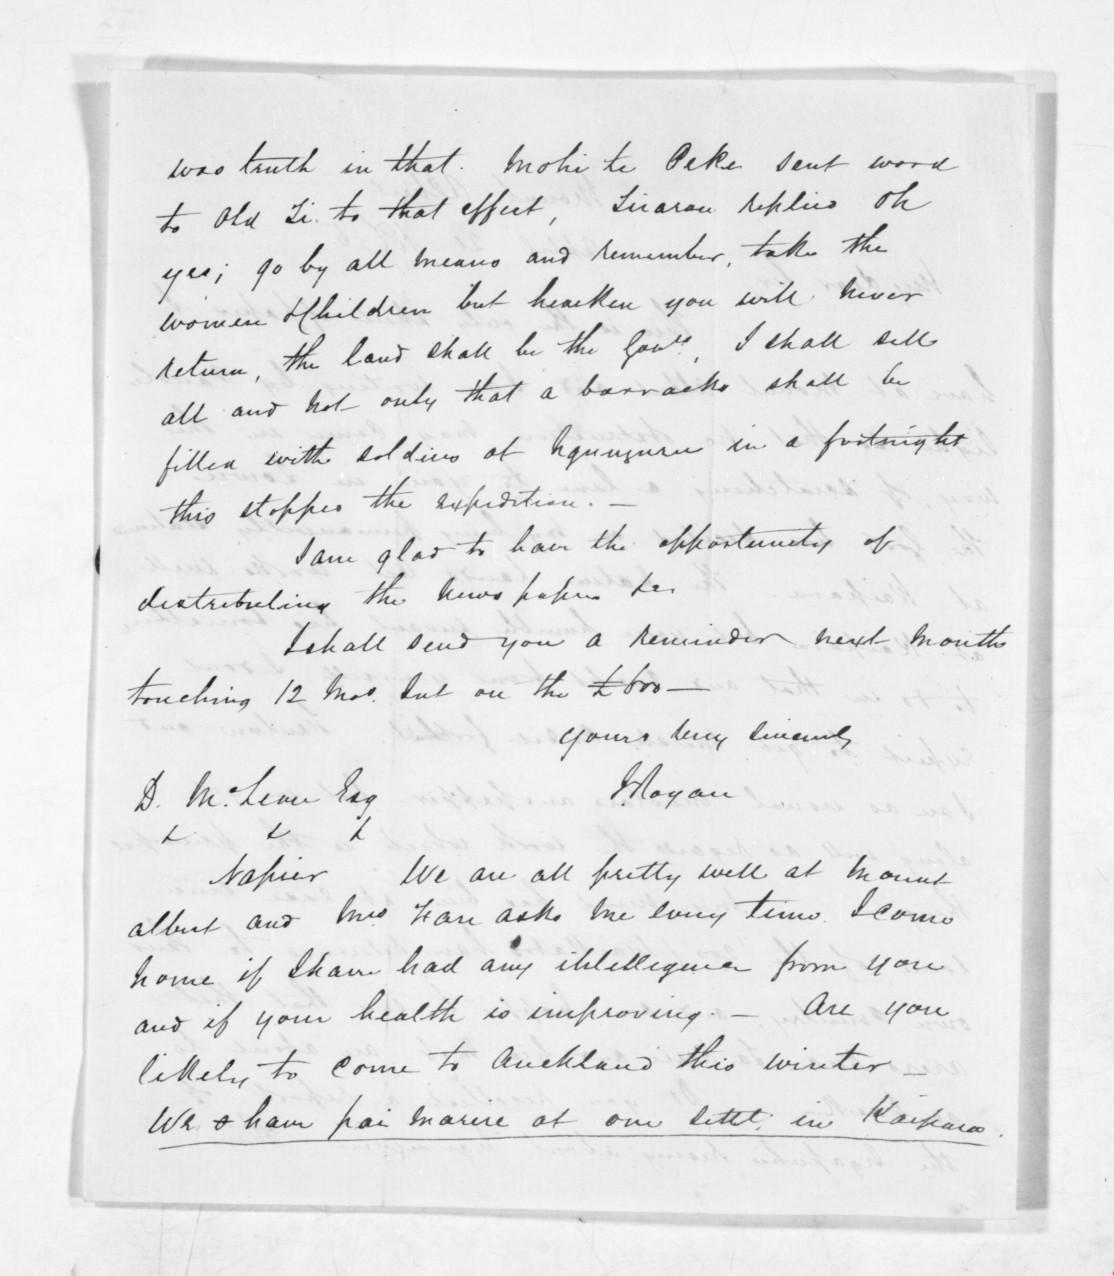 was truth in that. Mohi te Peke sent word
to Old Ti. to that effect, Tirarau replies Oh
yes; go by all means and remember, take the
women & Children but hearken you will never
return, the land shall be the Govts, I shall sell
all and not only that a barracks shall be
filled with soldiers at Ngunguru in a fortnight
this stopped the expedition. —
I am glad to have the opportunity of
distributing the news papers &c.
I shall send you a reminder next month
touching 12 Mos. Int on the £600 —
yours very sincerely
D. McLean Esq JRogan
& & &
Napier We are all pretty well at Mount
albert and Mrs asks me every time I come
home if I have had any intelligence from you
and if your health is improving. — Are you
likely to come to Auckland this winter —
We have pai marire at one settt. in Kaipara.